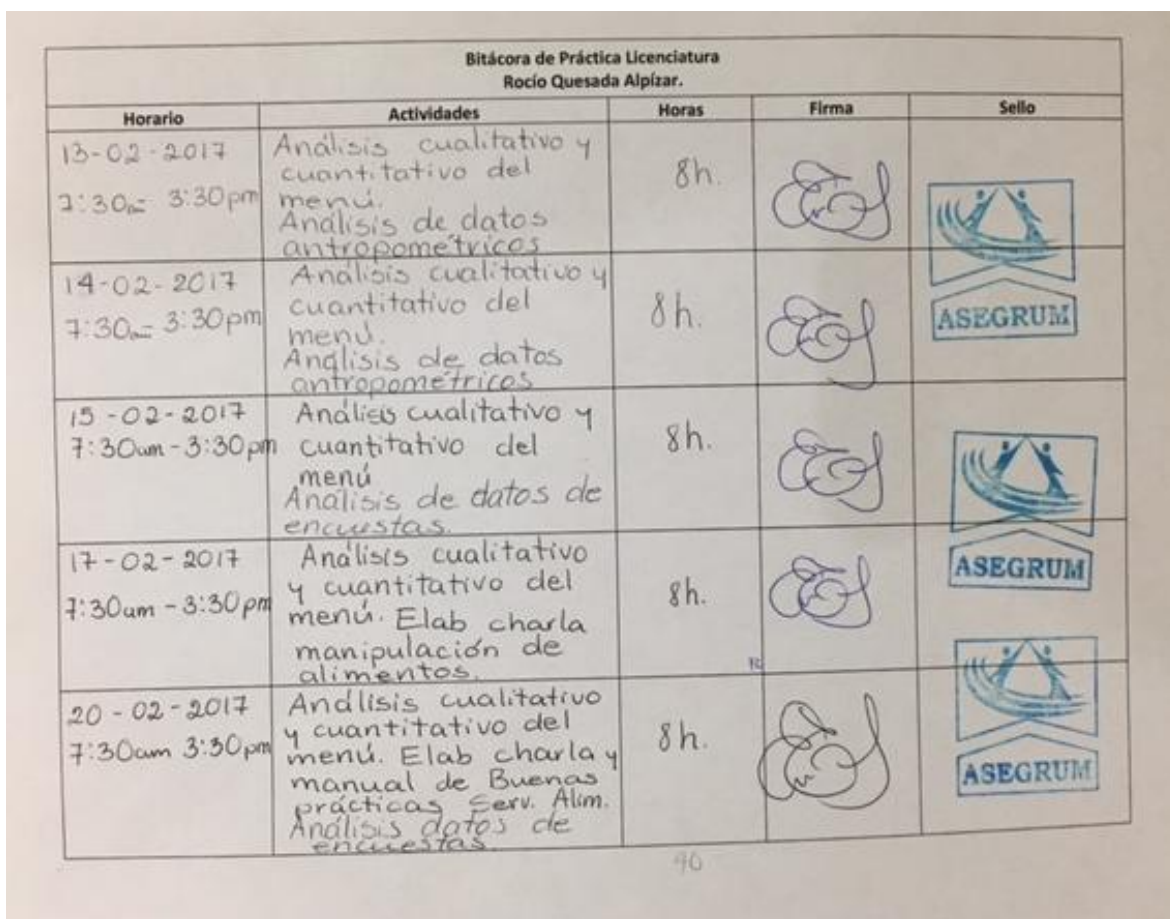 Bitácora de Práctica Licenciatura
Rocío Quesada Alpízar.
Horario Actividades Horas Firma Sello
13-02-2017
7:30am- 3:30pm
Análisis cualitativo y
cuantitativo del
menú.
Análisis de datos
antropométricos
8h.
14-02-2017
7:30am- 3:30pm
Análisis cualitativo y
cuantitativo del
menú.
Análisis de datos
antropométricos
8h.
ASEGRUM
15-02-2017
7:30am-3:30pm
Análisis cualitativo y
cuantitativo del
menú
Análisis de datos de
encuestas.
8h.
17-02-2017
7:30am-3:30pm
Análisis cualitativo
y cuantitativo del
menú. Elab charla
manipulación de
alimentos.
8h.
ASEGRUM
20-02-2017
7:30am 3:30pm
Análisis cualitativo
y cuantitativo del
menú. Elab charla y
manual de Buenas
prácticas Serv. Alim.
Análisis datos de
encuestas.
8h.
ASEGRUM
40